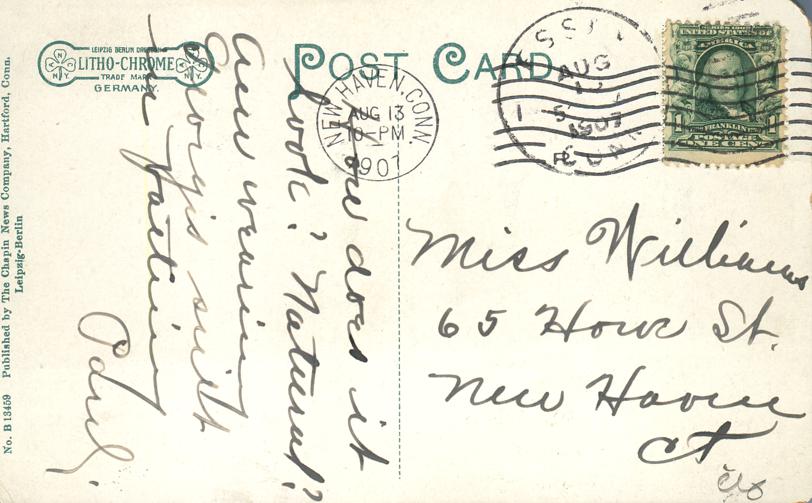 No. B 13459 Published by The Chapin News Company, Hartford, Conn.
Leipzig-Berlin
LEIPZIG BERLIN DRESDEN
LITHO-CHROME
TRADE MARK
GERMANY.
N.Y.
N.Y.
POST CARD
NEW HAVEN, CONN.
AUG 13
10-PM
1907
ESSEX
AUG
5
1907
CONN
SERIES 1902
UNITED STATES OF AMERICA
1
FRANKLIN
POSTAGE
ONE CENT
How does it
look? Natural?
Am wearing
suit
Miss Williams
65 Howe St.
New Haven
Ct